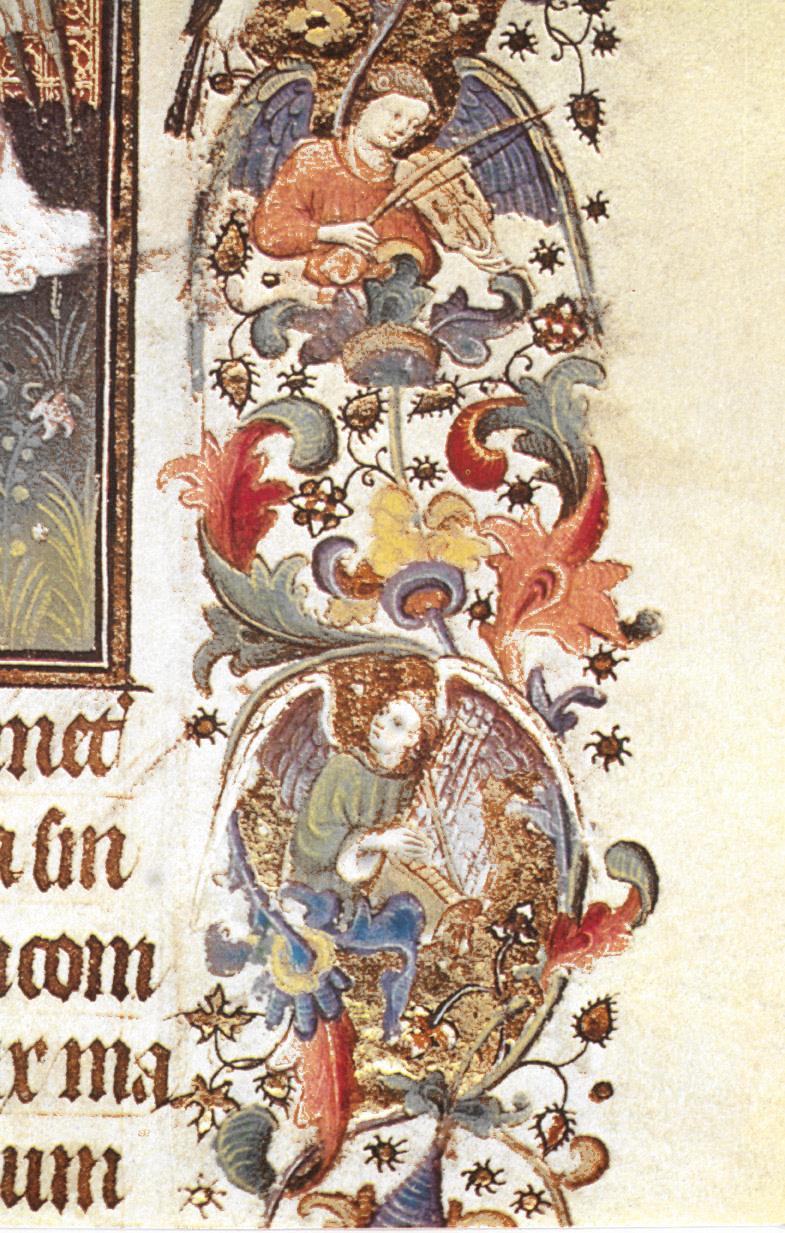 met
a sin
acom
x ma
um